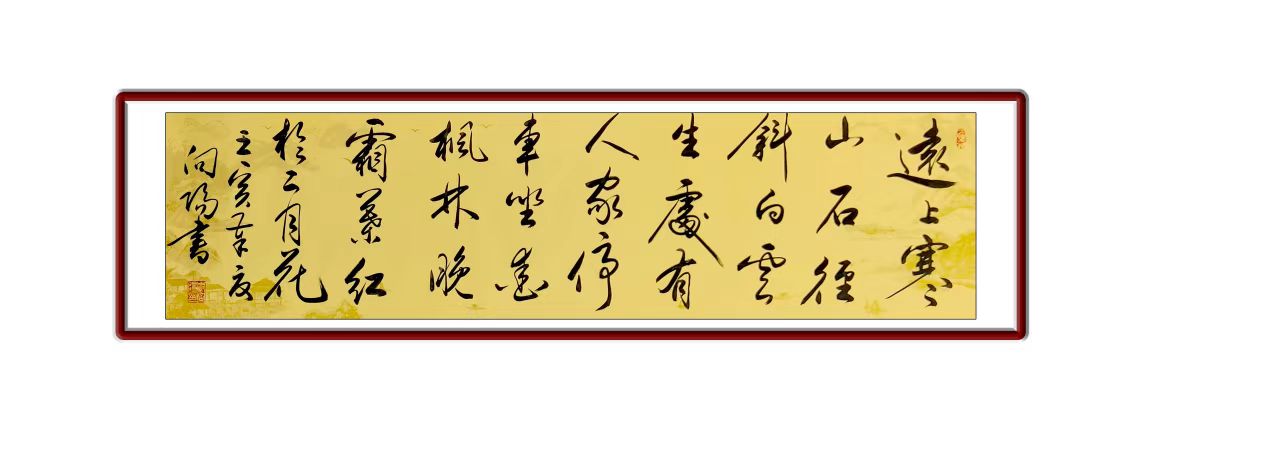 遠上寒
山石徑
斜白雲
生處有
人家停
車坐愛
楓林晚
霜葉紅
於二月花
壬寅年夏
向陽書